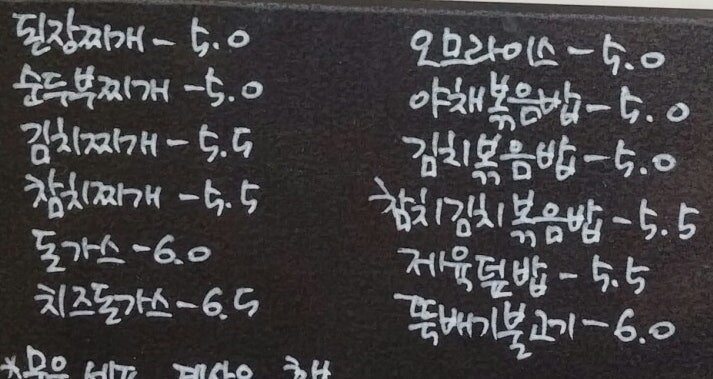 된장찌개 - 5.0
순두부찌개 - 5.0
김치찌개 - 5.5
참치찌개 - 5.5
돈가스 - 6.0
치즈돈가스 - 6.5
오므라이스 - 5.0
야채볶음밥 - 5.0
김치볶음밥 - 5.0
참치김치볶음밥 - 5.5
제육덮밥 - 5.5
뚝배기불고기 - 6.0